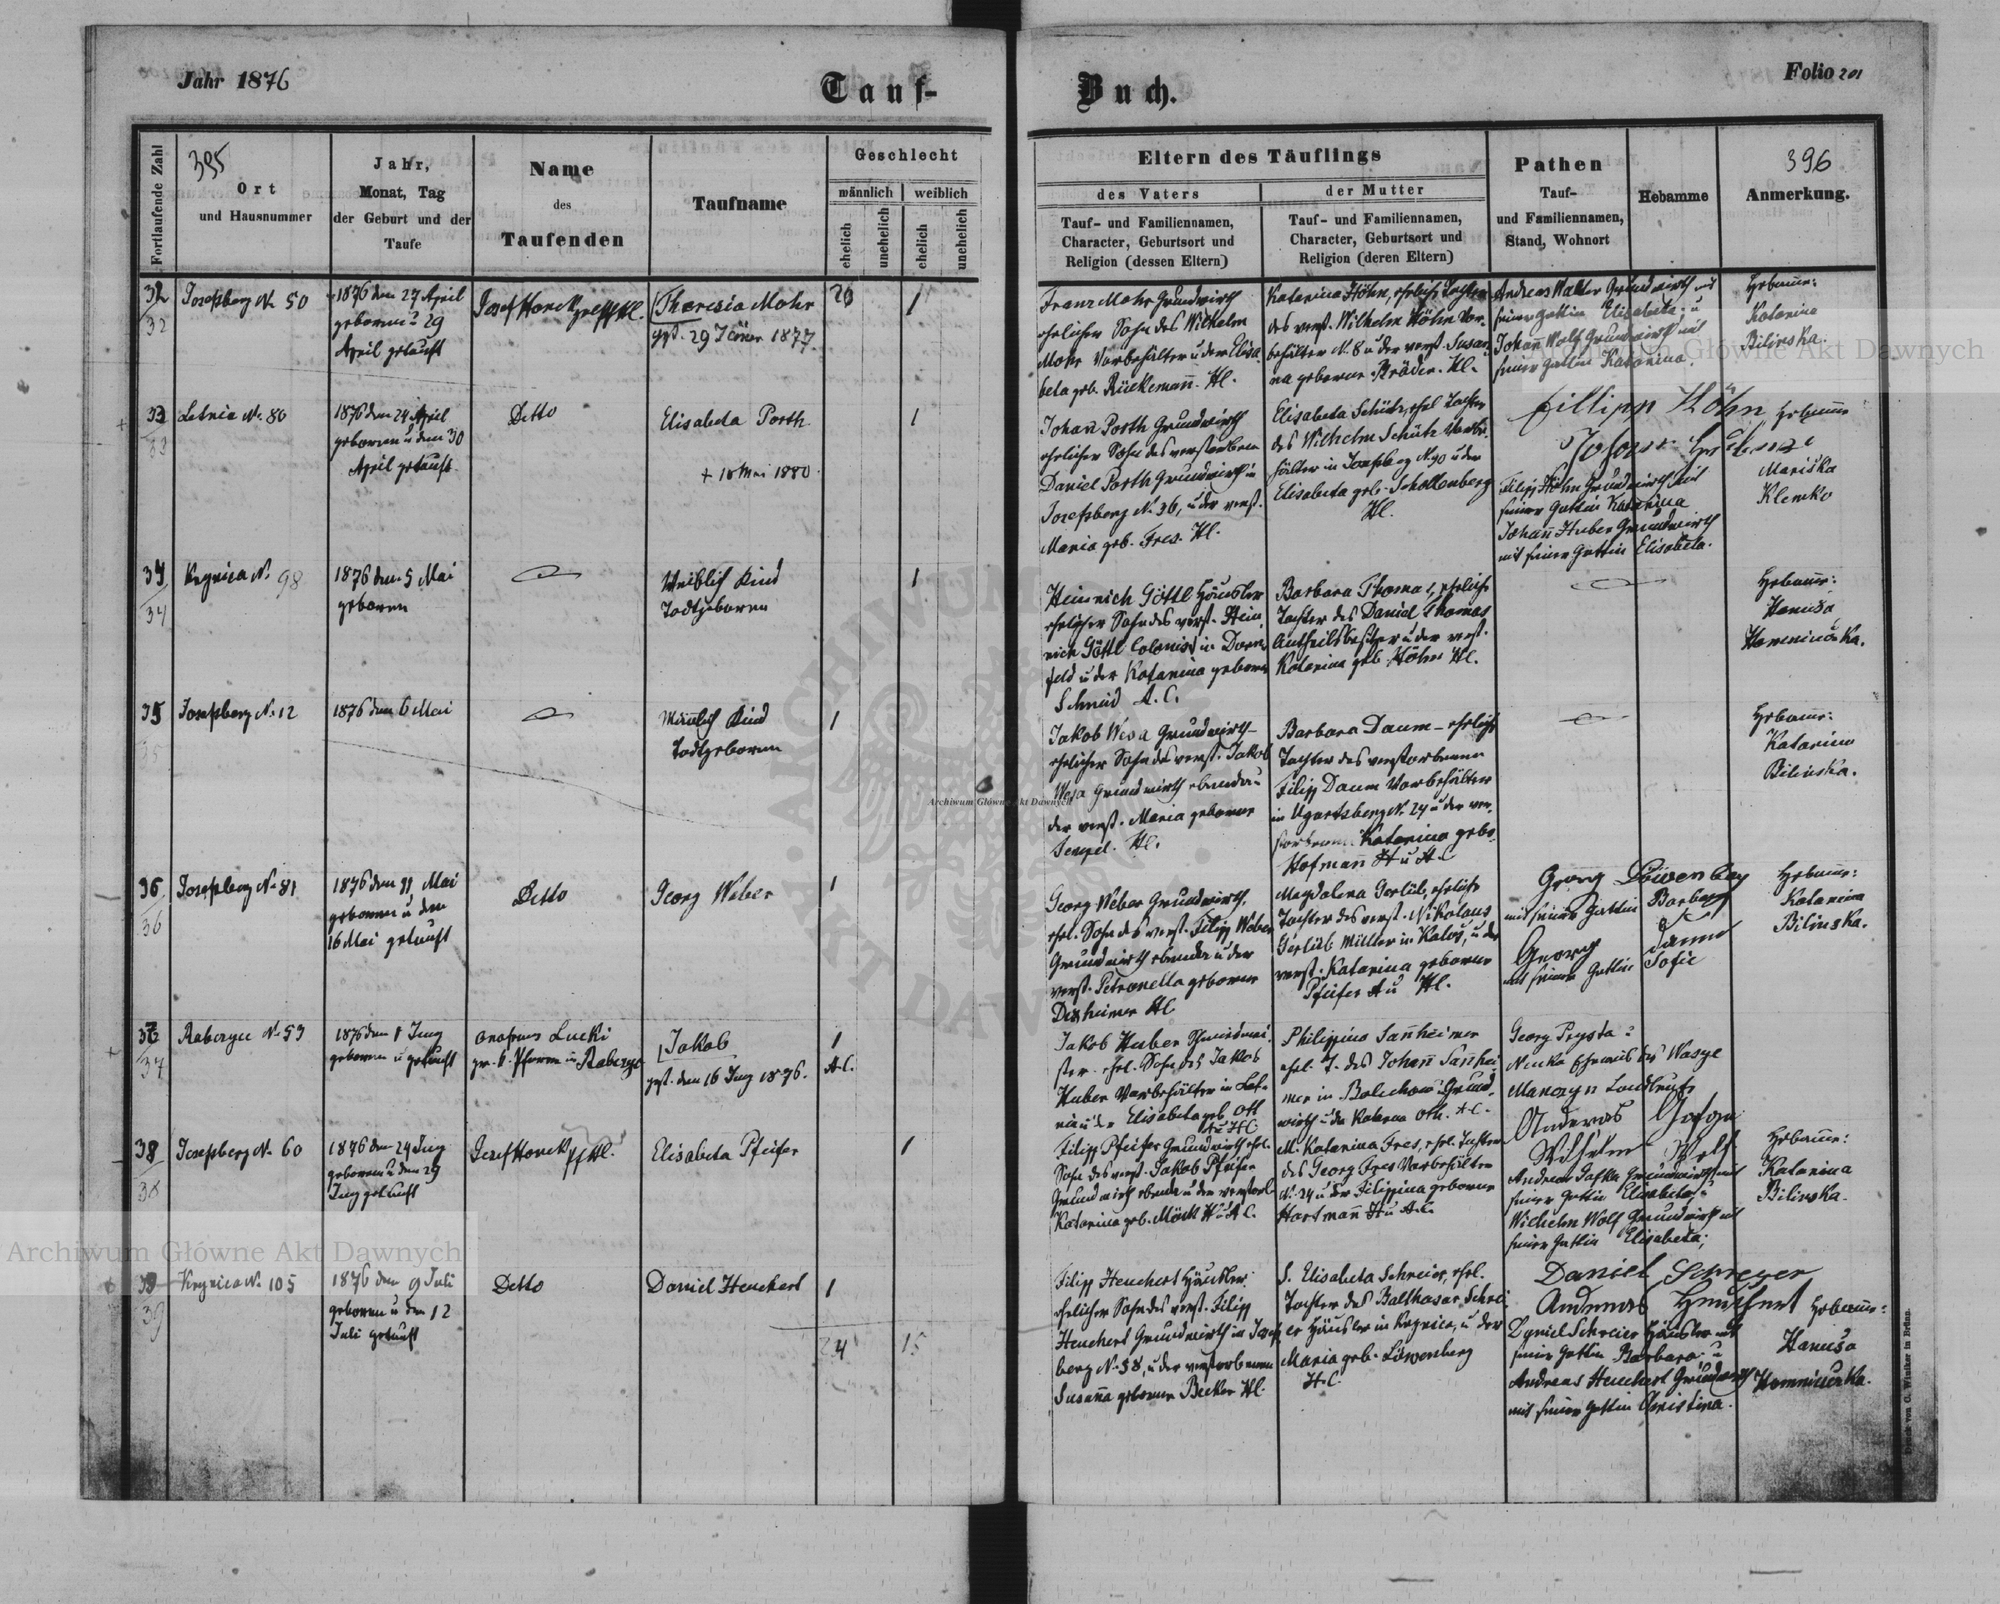 Jahr 1876
Tauf-
Buch.
Folio 201
Fortlaufende Zahl
395
Ort
und Hausnummer
Jahr,
Monat, Tag
der Geburt und der
Taufe
Name
des
Taufenden
Taufname
Geschlecht
männlich
weiblich
ehelich
unehelich
ehelich
unehelich
Eltern des Täuflings
des Vaters
der Mutter
Tauf- und Familiennamen,
Character, Geburtsort und
Religion (dessen Eltern)
Tauf- und Familiennamen,
Character, Geburtsort und
Religion (deren Eltern)
Pathen
Tauf-
und Familiennamen,
Stand, Wohnort
Hebamme
396
Anmerkung.
32
32
Josefsberg N. 50
1876 den 27 April
geboren u 29
April getauft
Theresia Mohr
gest. 29 Jäner 1877.
1
Franz Mohr Grundwirth
ehelicher Sohn des Wilhelm
Mohr Vorbehälter u der Elisa
beta geb. Rückemañ. Hl.
Katarina Höhn, eheliche Tochter
des verst. Wilhelm Höhn Vor-
behälter N. 8 u der verst. Susan
na geborne Bräder. Hl.
Andreas Walter Grundwirth mit
seiner Gattin Elisabeta u
Johan Wolf Grundwirth mit
seiner Gattin Katarina.
Hebame:
Katarina
Bilinska.
33
33
Letnia N. 80
1876 den 24 April
geboren u den 30
April getauft
Detto
Elisabeta Porth
+ 18 Mai 1880.
1
Johañ Porth Grundwirth
ehelicher Sohn des verstorbenen
Daniel Porth Grundwirth in
Josefsberg N. 36, u der verst.
Maria geb. Fres. Hl.
Elisabeta Schütz, ehel Tochter
des Wilhelm Schütz Vorbe
hälter in Josefsberg N. 90 u der
Elisabeta geb. Schollenberg
Hl.
Fillipp Höhn
Filipp Höhn Grundwirth mit
seiner Gattin Katarina
Johañ Huber Grundwirth
mit seiner Gattin Elisabeta.
Hebame
Mariska
Klemko
34
34
Krynica N. 98
1876 den 5 Mai
geboren
Weiblich Kind
Todtgeboren
1
Heinrich Göttl Häusler
ehelicher Sohn des verst. Hein
rich Göttl Colonist in Dorn
feld u der Katarina geborne
Schmid A. C.
Barbara Thomas, eheliche
Tochter des Daniel Thomas
Antheilsbesitzer u der verst.
Katarina geb. Höhn Hl.
Hebame:
Hanusa
35
35
Josefsberg N. 12
1876 den 6 Mai
Mänlich Kind
Todtgeboren
1
Jakob Wesa Grundwirth
ehelicher Sohn des verst. Jakob
Wesa Grundwirth ebenda u
der verst. Maria geborne
Tempel. Hl.
Barbara Daum - eheliche
Tochter des verstorbenen
Filipp Daum Vorbehälter
in Ugartsberg N. 24 u der ver-
storbenen Katarina gebo.
Hofmañ H u A. C
Hebame:
Katarina
Bilinska.
36
36
Josefsberg N. 81
1876 den 11 Mai
geboren u den
16 Mai getauft
Detto
Georg Weber
1
Georg Weber Grundwirth,
ehel. Sohn des verst. Filipp Weber
Grundwirth ebenda u der
verst. Petronella geborne
Dexheimer Hl
Magdalena Gerlib, eheliche
Tochter des verst. Nikolaus
Gerlieb Müller in Kalusz, u der
verst. Katarina geborne
Pfeifer A u Hl.
Georg Löwenberg
mit seiner Gattin Barbara
Georg
mit seiner Gattin Sofie
Hebame:
Katarina
Bilinska.
37
37
Rabczyce N. 53
1876 den 1 Juny
geboren u getauft
Jakob
gest. den 16 Juny 1876.
1
A.C.
Jakob Huber Schmidmei
ster. ehel. Sohn des Jakob
Huber Vorbehälter in Let-
nia u der Elisabeta geb. Ott
A u H.C.
Philippina Sanheimer
ehel. T. des Johañ Sanhei
mer in Bolechow Grund-
wirth u der Katarina Oth. A. C.
Georg Prysta
38
38
Josefsberg N. 60
1876 den 24 Juny
geboren u den 29
Juny getauft
Elisabeta Pfeifer
1
Filipp Pfeifer Grundwirth ehel.
Sohn des verst. Jakob Pfeifer
Grundwirth ebenda u der verstorb
Katarina geb. Möck H u A C.
M. Katarina Fres, ehel. Tochter
des Georg Fres Vorbehälter
N. 24 u der Filippina geborne
Hartmañ H u A. C.
Wilhelm Wolf
seiner Gattin Elisabeta
Wilhelm Wolf Grundwirth mit
seiner Gattin Elisabeta;
Hebame:
Katarina
Bilinska.
39
39
Krynica N. 105
1876 den 9 Juli
geboren u den 12
Juli getauft
Detto
Daniel Heuchert
1
24
15
Filipp Heuchert Häusler
ehelicher Sohn des verst. Filipp
Heuchert Grundwirth in Josefs
berg N. 58, u der verstorbenen
Susaña geborne Becker Hl.
S. Elisabeta Schreier, ehel.
Tochter des Balthasar Schrei
er Häusler in Krynica, u der
Maria geb. Löwenberg
H.C.
Daniel Schreyer
Andreas Heuchert
Daniel Schreier Häusler mit
seiner Gattin Barbara u
Andreas Heuchert Grundwirth
mit seiner Gattin Christina.
Hebame:
Hanusa
Druck von C. Winiker in Brünn.
Archiwum Główne Akt Dawnych
Archiwum Główne Akt Dawnych
Archiwum Główne Akt Dawnych
ARCHIWUM
AKT DAWNYCH